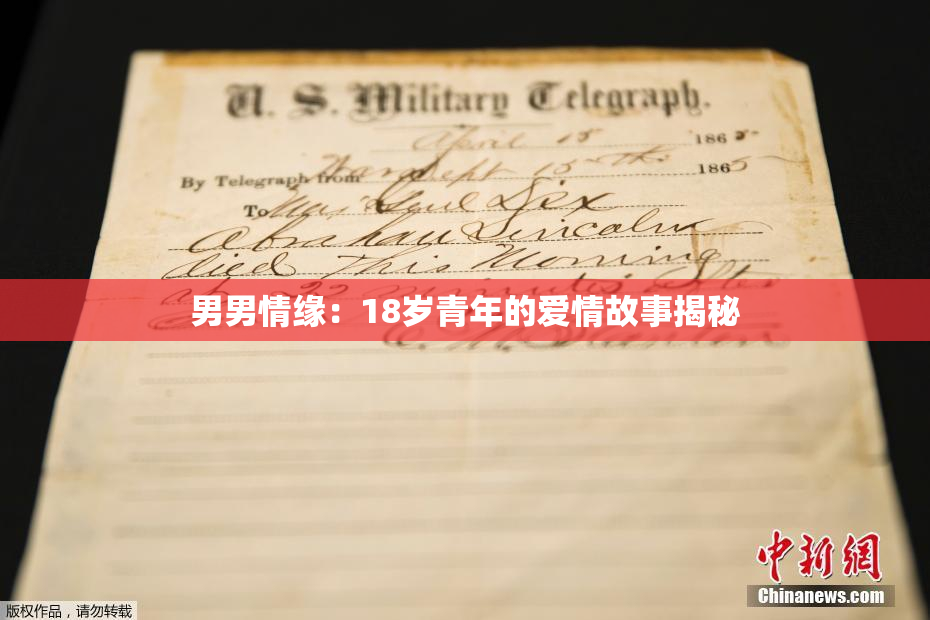 U. S. Military Telegraph.
April 15 1865
By Telegraph from War Dept 15th 1865
To Maj Genl Dix
Abraham Lincoln
died This Morning
at 22 minutes after
男男情缘：18岁青年的爱情故事揭秘
E. M. Stanton
中新网
Chinanews.com
版权作品，请勿转载